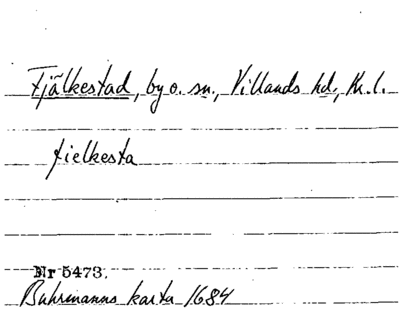 Fjälkestad, by o. sn., Villands hd., Kr. l.
fielkesta
Nr 5473.
Buhrmanns karta 1684